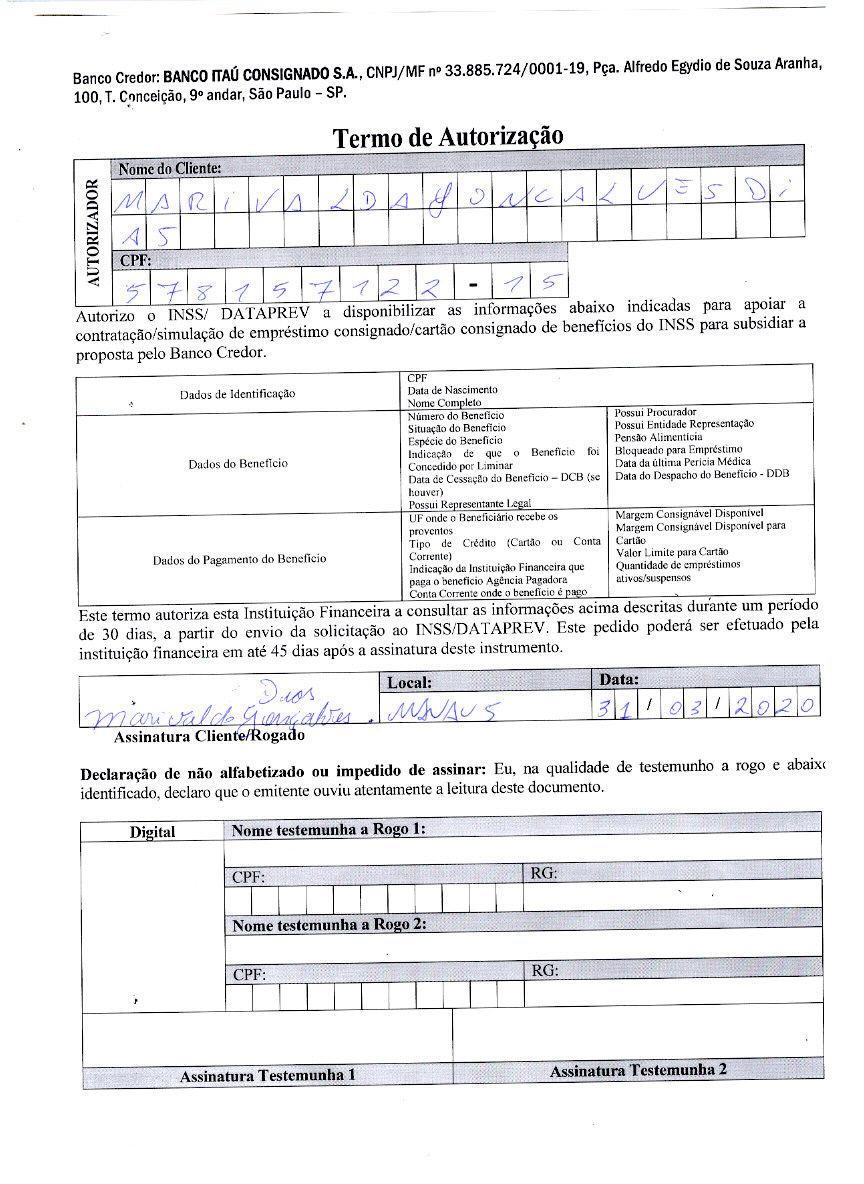 Banco Credor: BANCO ITAÚ CONSIGNADO S.A., CNPJ/MF nº 33.885.724/0001-19, Pça. Alfredo Egydio de Souza Aranha,
100, T. Conceição, 9º andar, São Paulo – SP.
Termo de Autorização
AUTORIZADOR
Nome do Cliente:
MARIVALDA GONCALVES DI
AS
CPF:
578157122-15
Autorizo o INSS/ DATAPREV a disponibilizar as informações abaixo indicadas para apoiar a
contratação/simulação de empréstimo consignado/cartão consignado de benefícios do INSS para subsidiar a
proposta pelo Banco Credor.
Dados de Identificação
CPF
Data de Nascimento
Nome Completo
Dados do Benefício
Número do Benefício
Situação do Benefício
Espécie do Benefício
Indicação de que o Benefício foi
Concedido por Liminar
Data de Cessação do Benefício – DCB (se
houver)
Possui Representante Legal
Possui Procurador
Possui Entidade Representação
Pensão Alimentícia
Bloqueado para Empréstimo
Data da última Perícia Médica
Data do Despacho do Benefício - DDB
Dados do Pagamento do Benefício
UF onde o Beneficiário recebe os
proventos
Tipo de Crédito (Cartão ou Conta
Corrente)
Indicação da Instituição Financeira que
paga o benefício Agência Pagadora
Conta Corrente onde o benefício é pago
Margem Consignável Disponível
Margem Consignável Disponível para
Cartão
Valor Limite para Cartão
Quantidade de empréstimos
ativos/suspensos
Este termo autoriza esta Instituição Financeira a consultar as informações acima descritas durante um período
de 30 dias, a partir do envio da solicitação ao INSS/DATAPREV. Este pedido poderá ser efetuado pela
instituição financeira em até 45 dias após a assinatura deste instrumento.
Dias
Marivalda Gonçalves.
Assinatura Cliente/Rogado
Local:
MANAUS
Data:
31/03/2020
Declaração de não alfabetizado ou impedido de assinar: Eu, na qualidade de testemunho a rogo e abaixo
identificado, declaro que o emitente ouviu atentamente a leitura deste documento.
Digital
Nome testemunha a Rogo 1:
CPF:
RG:
Nome testemunha a Rogo 2:
CPF:
RG:
Assinatura Testemunha 1
Assinatura Testemunha 2